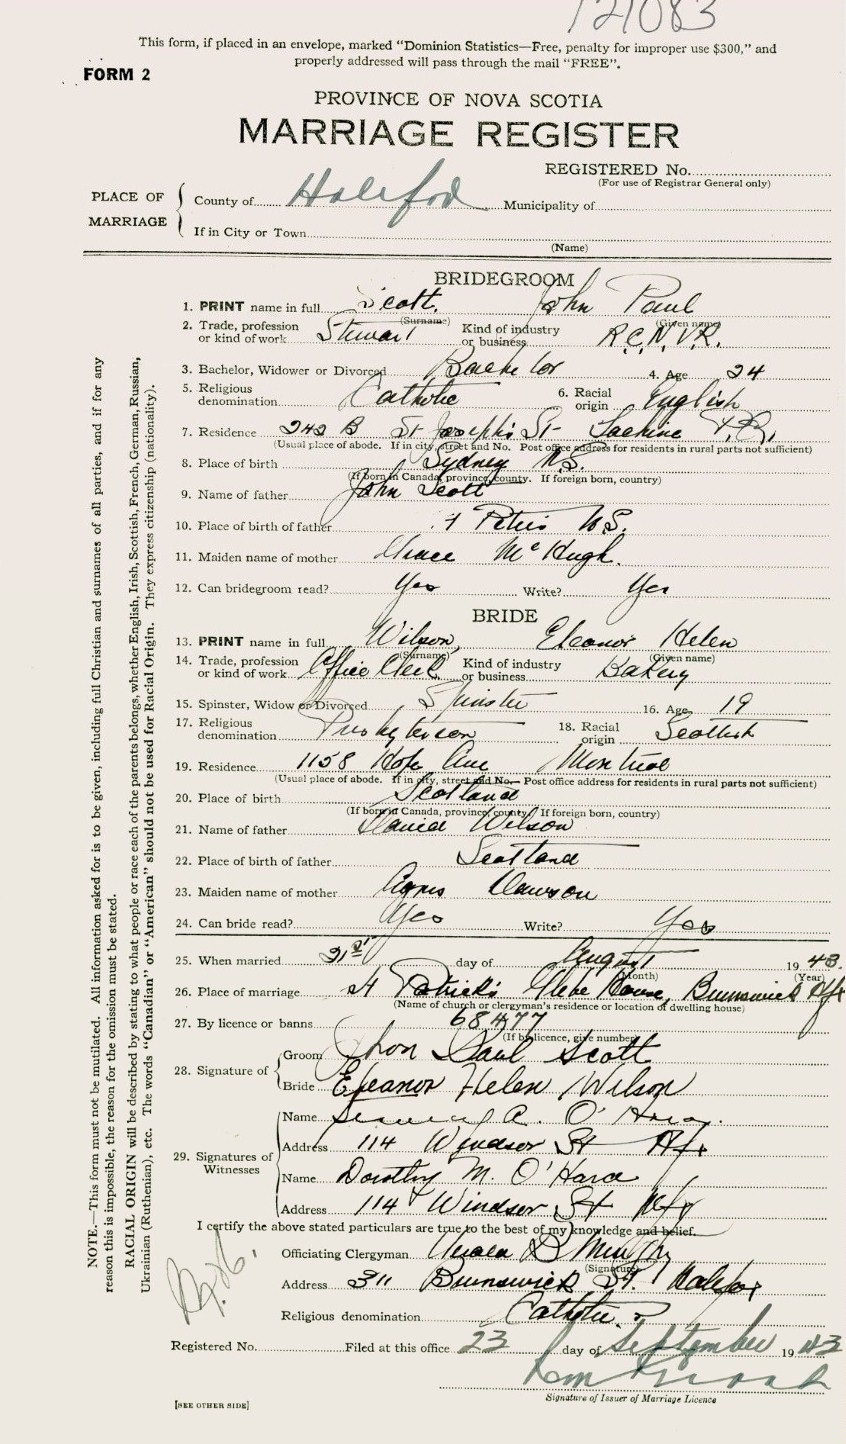 121083
This form, if placed in an envelope, marked "Dominion Statistics—Free, penalty for improper use $300," and
properly addressed will pass through the mail "FREE".
FORM 2
PROVINCE OF NOVA SCOTIA
MARRIAGE REGISTER
REGISTERED No.
(For use of Registrar General only)
PLACE OF MARRIAGE
County of Halifax Municipality of
If in City or Town
(Name)
BRIDEGROOM
1. PRINT name in full Scott, John Paul
(Surname) (Given name)
2. Trade, profession or kind of work Stewart Kind of industry or business R.C.N.V.R.
3. Bachelor, Widower or Divorced Bachelor 4. Age 24
5. Religious denomination Catholic 6. Racial origin English
7. Residence 243 B St Joseph's St Lachine P.Q.
(Usual place of abode. If in city, street and No. Post office address for residents in rural parts not sufficient)
8. Place of birth Sydney N.S.
(If born in Canada, province, county. If foreign born, country)
9. Name of father John Scott
10. Place of birth of father St Peters N.S.
11. Maiden name of mother Grace McHugh.
12. Can bridegroom read? Yes Write? Yes
BRIDE
13. PRINT name in full Wilson, Eleanor Helen
(Surname) (Given name)
14. Trade, profession or kind of work Office Clerk Kind of industry or business Bakery
15. Spinster, Widow or Divorced Spinster 16. Age 19
17. Religious denomination Presbyterian 18. Racial origin Scottish
19. Residence 1158 Hope Ave Montreal
(Usual place of abode. If in city, street and No. Post office address for residents in rural parts not sufficient)
20. Place of birth Scotland
(If born in Canada, province, county. If foreign born, country)
21. Name of father David Wilson
22. Place of birth of father Scotland
23. Maiden name of mother Agnes Dawson
24. Can bride read? Yes Write? Yes
25. When married 21st day of August 1943.
(Month) (Year)
26. Place of marriage St Patrick's Glebe House, Brunswick Hfx
(Name of church or clergyman's residence or location of dwelling house)
27. By licence or banns 68477
(If by licence, give number)
28. Signature of
Groom John Paul Scott
Bride Eleanor Helen Wilson
29. Signatures of Witnesses
Name A. O'Hara.
Address 114 Windsor St Hfx
Name Dorothy M. O'Hara
Address 114 Windsor St Hfx
I certify the above stated particulars are true to the best of my knowledge and belief.
Officiating Clergyman
(Signature)
Address 311 Brunswick St. Halifax
Religious denomination Catholic
Registered No. Filed at this office 23 day of September 1943
Signature of Issuer of Marriage Licence
[SEE OTHER SIDE]
NOTE.—This form must not be mutilated. All information asked for is to be given, including full Christian and surnames of all parties, and if for any
reason this is impossible, the reason for the omission must be stated.
RACIAL ORIGIN will be described by stating to what people or race each of the parents belongs, whether English, Irish, Scottish, French, German, Russian,
Ukrainian (Ruthenian), etc. The words "Canadian" or "American" should not be used for Racial Origin. They express citizenship (nationality).